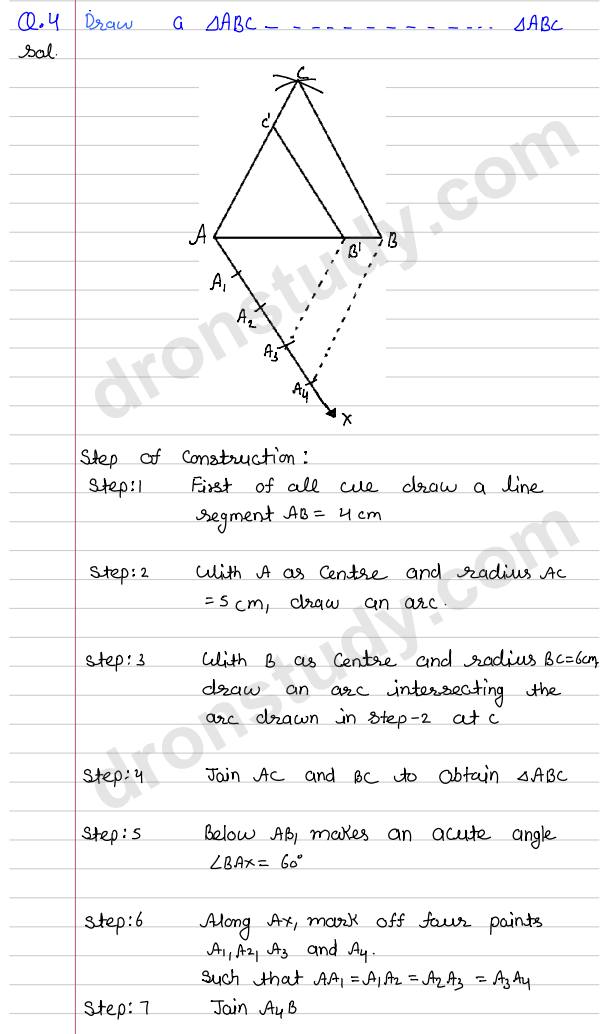 Q.4 Draw a △ABC - - - - - - - - - - - - - - - △ABC
Sol.
C
C'
A
B'
B
A1
A2
A3
A4
X
dronstudy.com
Step of Construction:
Step:1 First of all we draw a line
segment AB = 4 cm
Step:2 With A as Centre and radius AC
= 5 cm, draw an arc.
dronstudy.com
Step:3 With B as Centre and radius BC=6cm,
draw an arc intersecting the
arc drawn in Step-2 at C
Step:4 Join AC and BC to Obtain △ABC
Step:5 Below AB, makes an acute angle
∠BAX = 60°
Step:6 Along AX, mark off four points
A1, A2, A3 and A4.
Such that AA1 = A1A2 = A2A3 = A3A4
Step:7 Join A4B